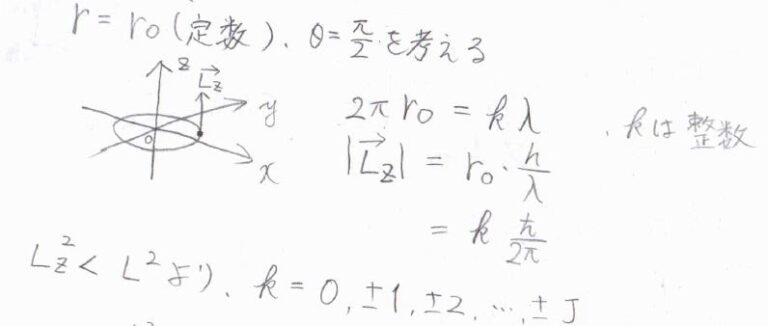 r = r₀ (定数)、θ = π/2 を考える
z
L⃗z
y
O
x
2πr₀ = kλ 、kは整数
|L⃗z| = r₀・h/λ
= k ħ/2π
Lz² < L² より、k = 0, ±1, ±2, …, ±J